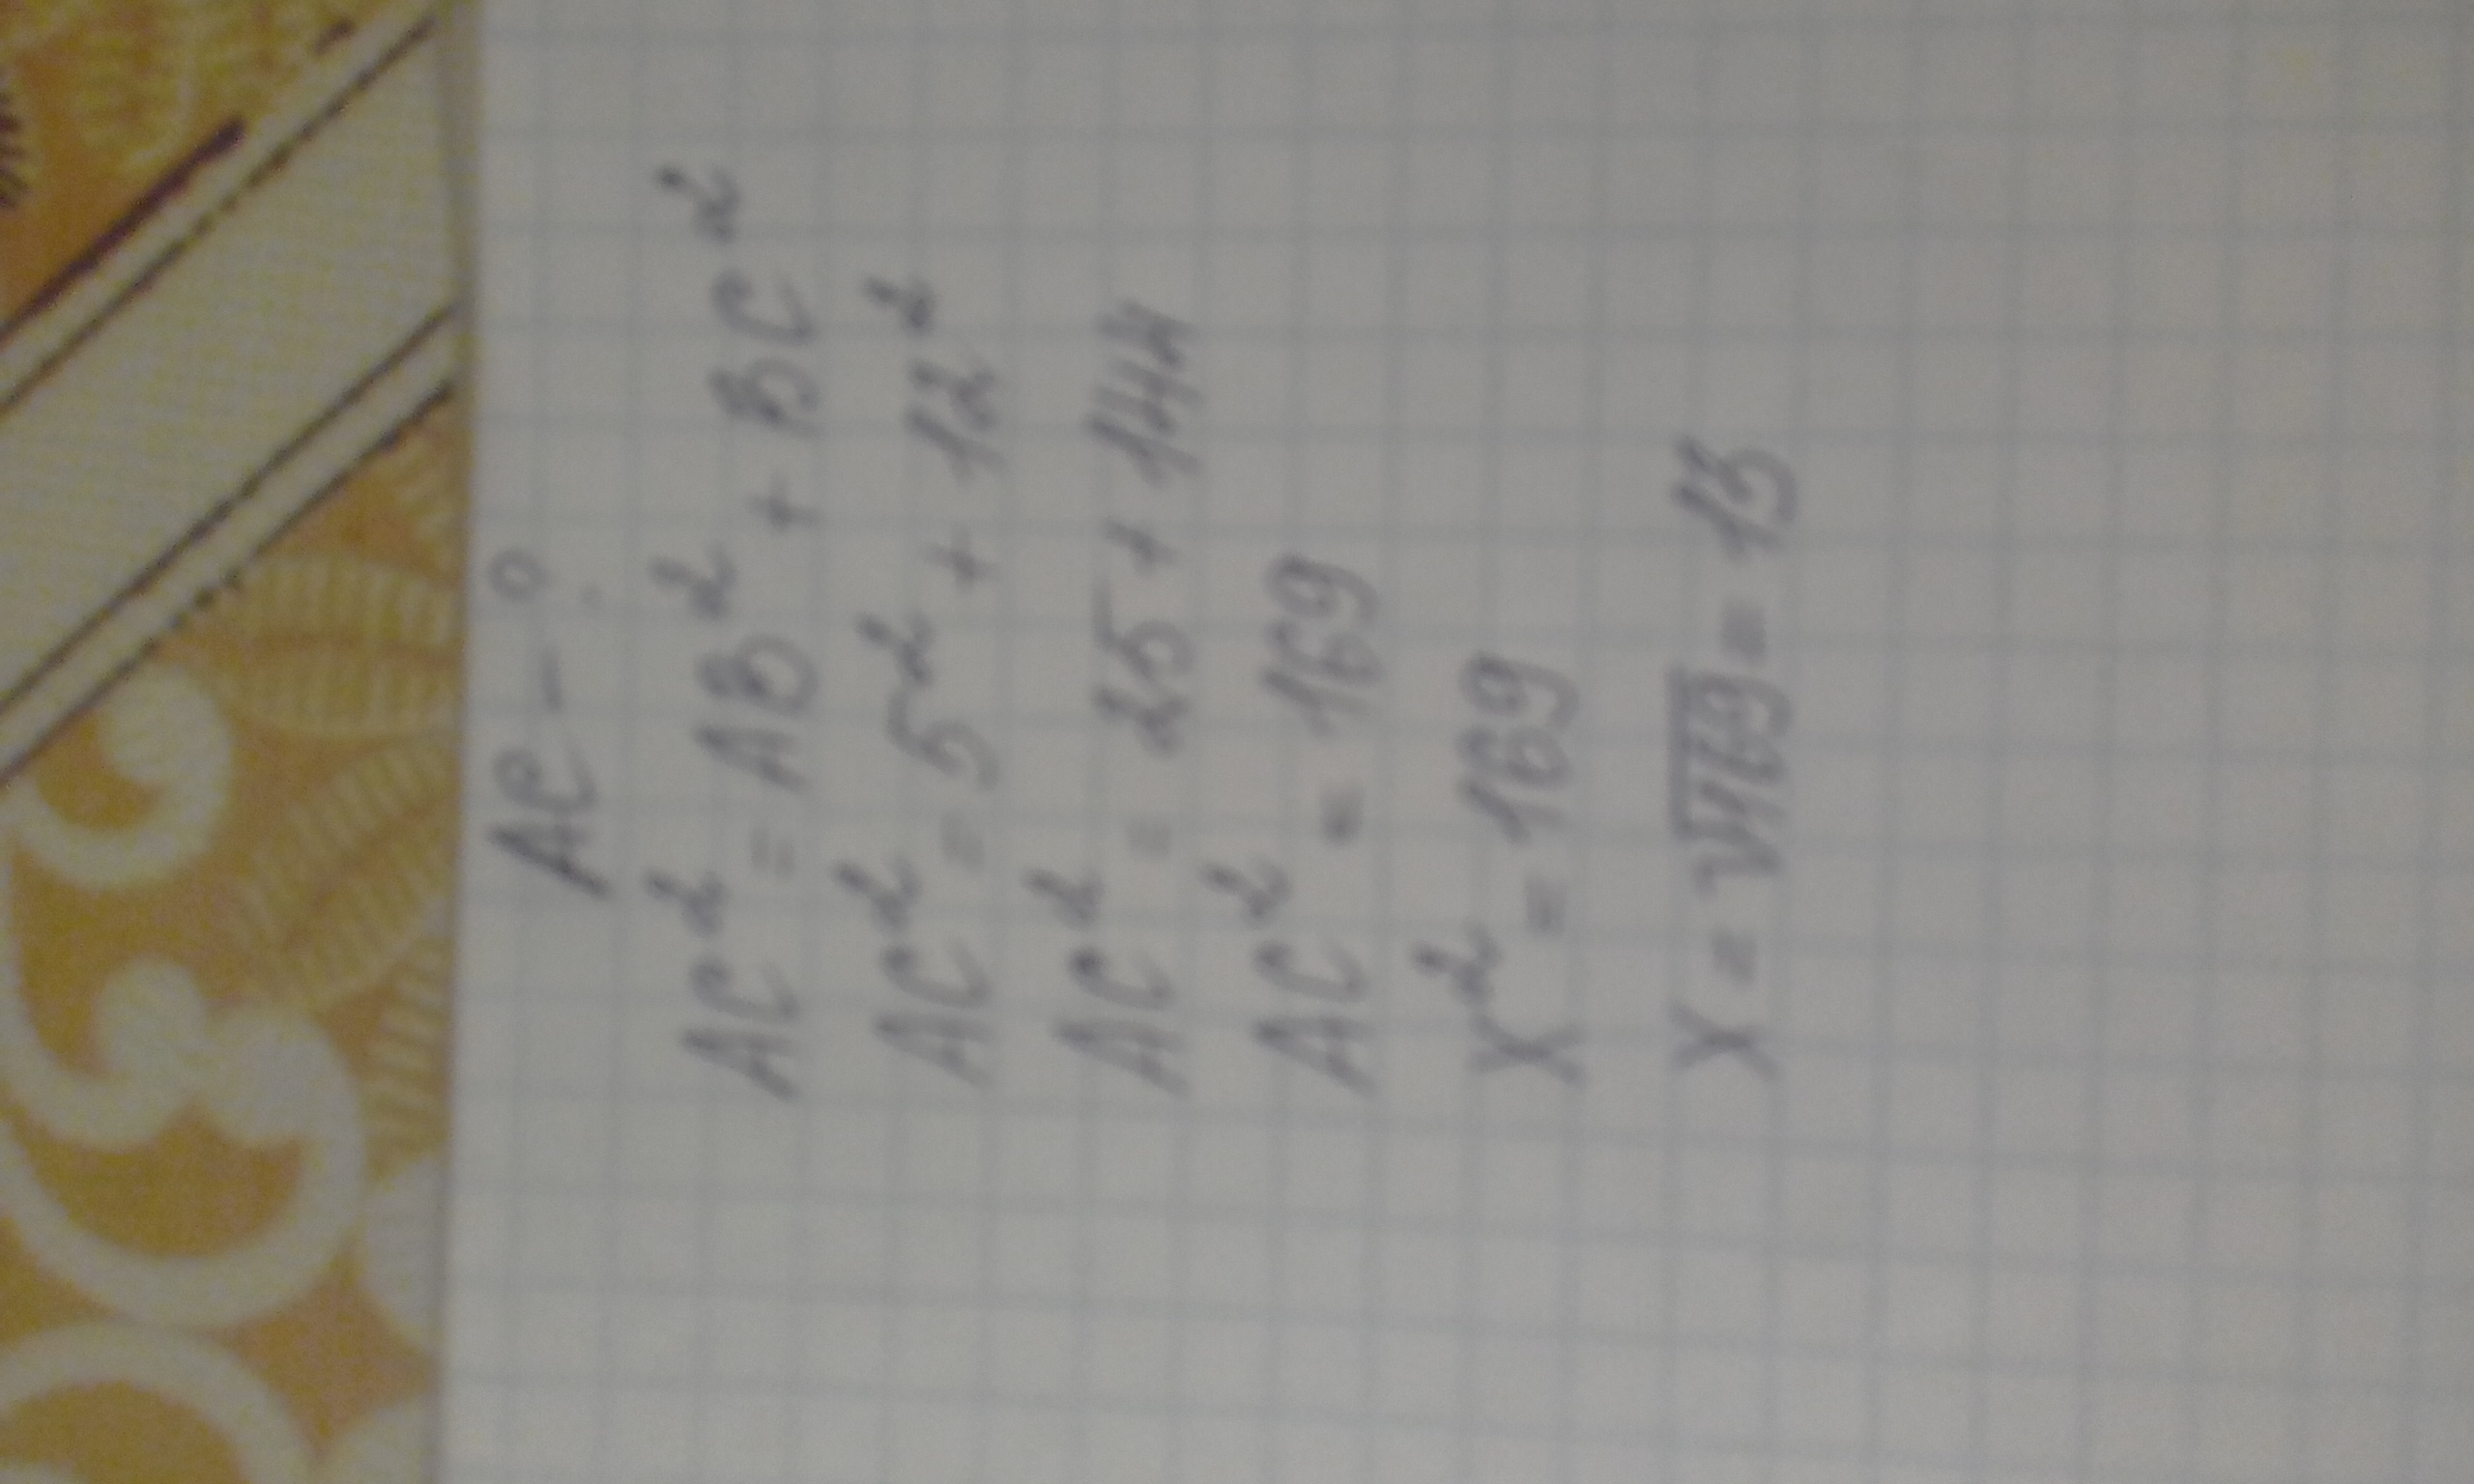 AC - ?
AC² = AB² + BC²
AC² = 5² + 12²
AC² = 25 + 144
AC² = 169
x² = 169
x = √169 = 13